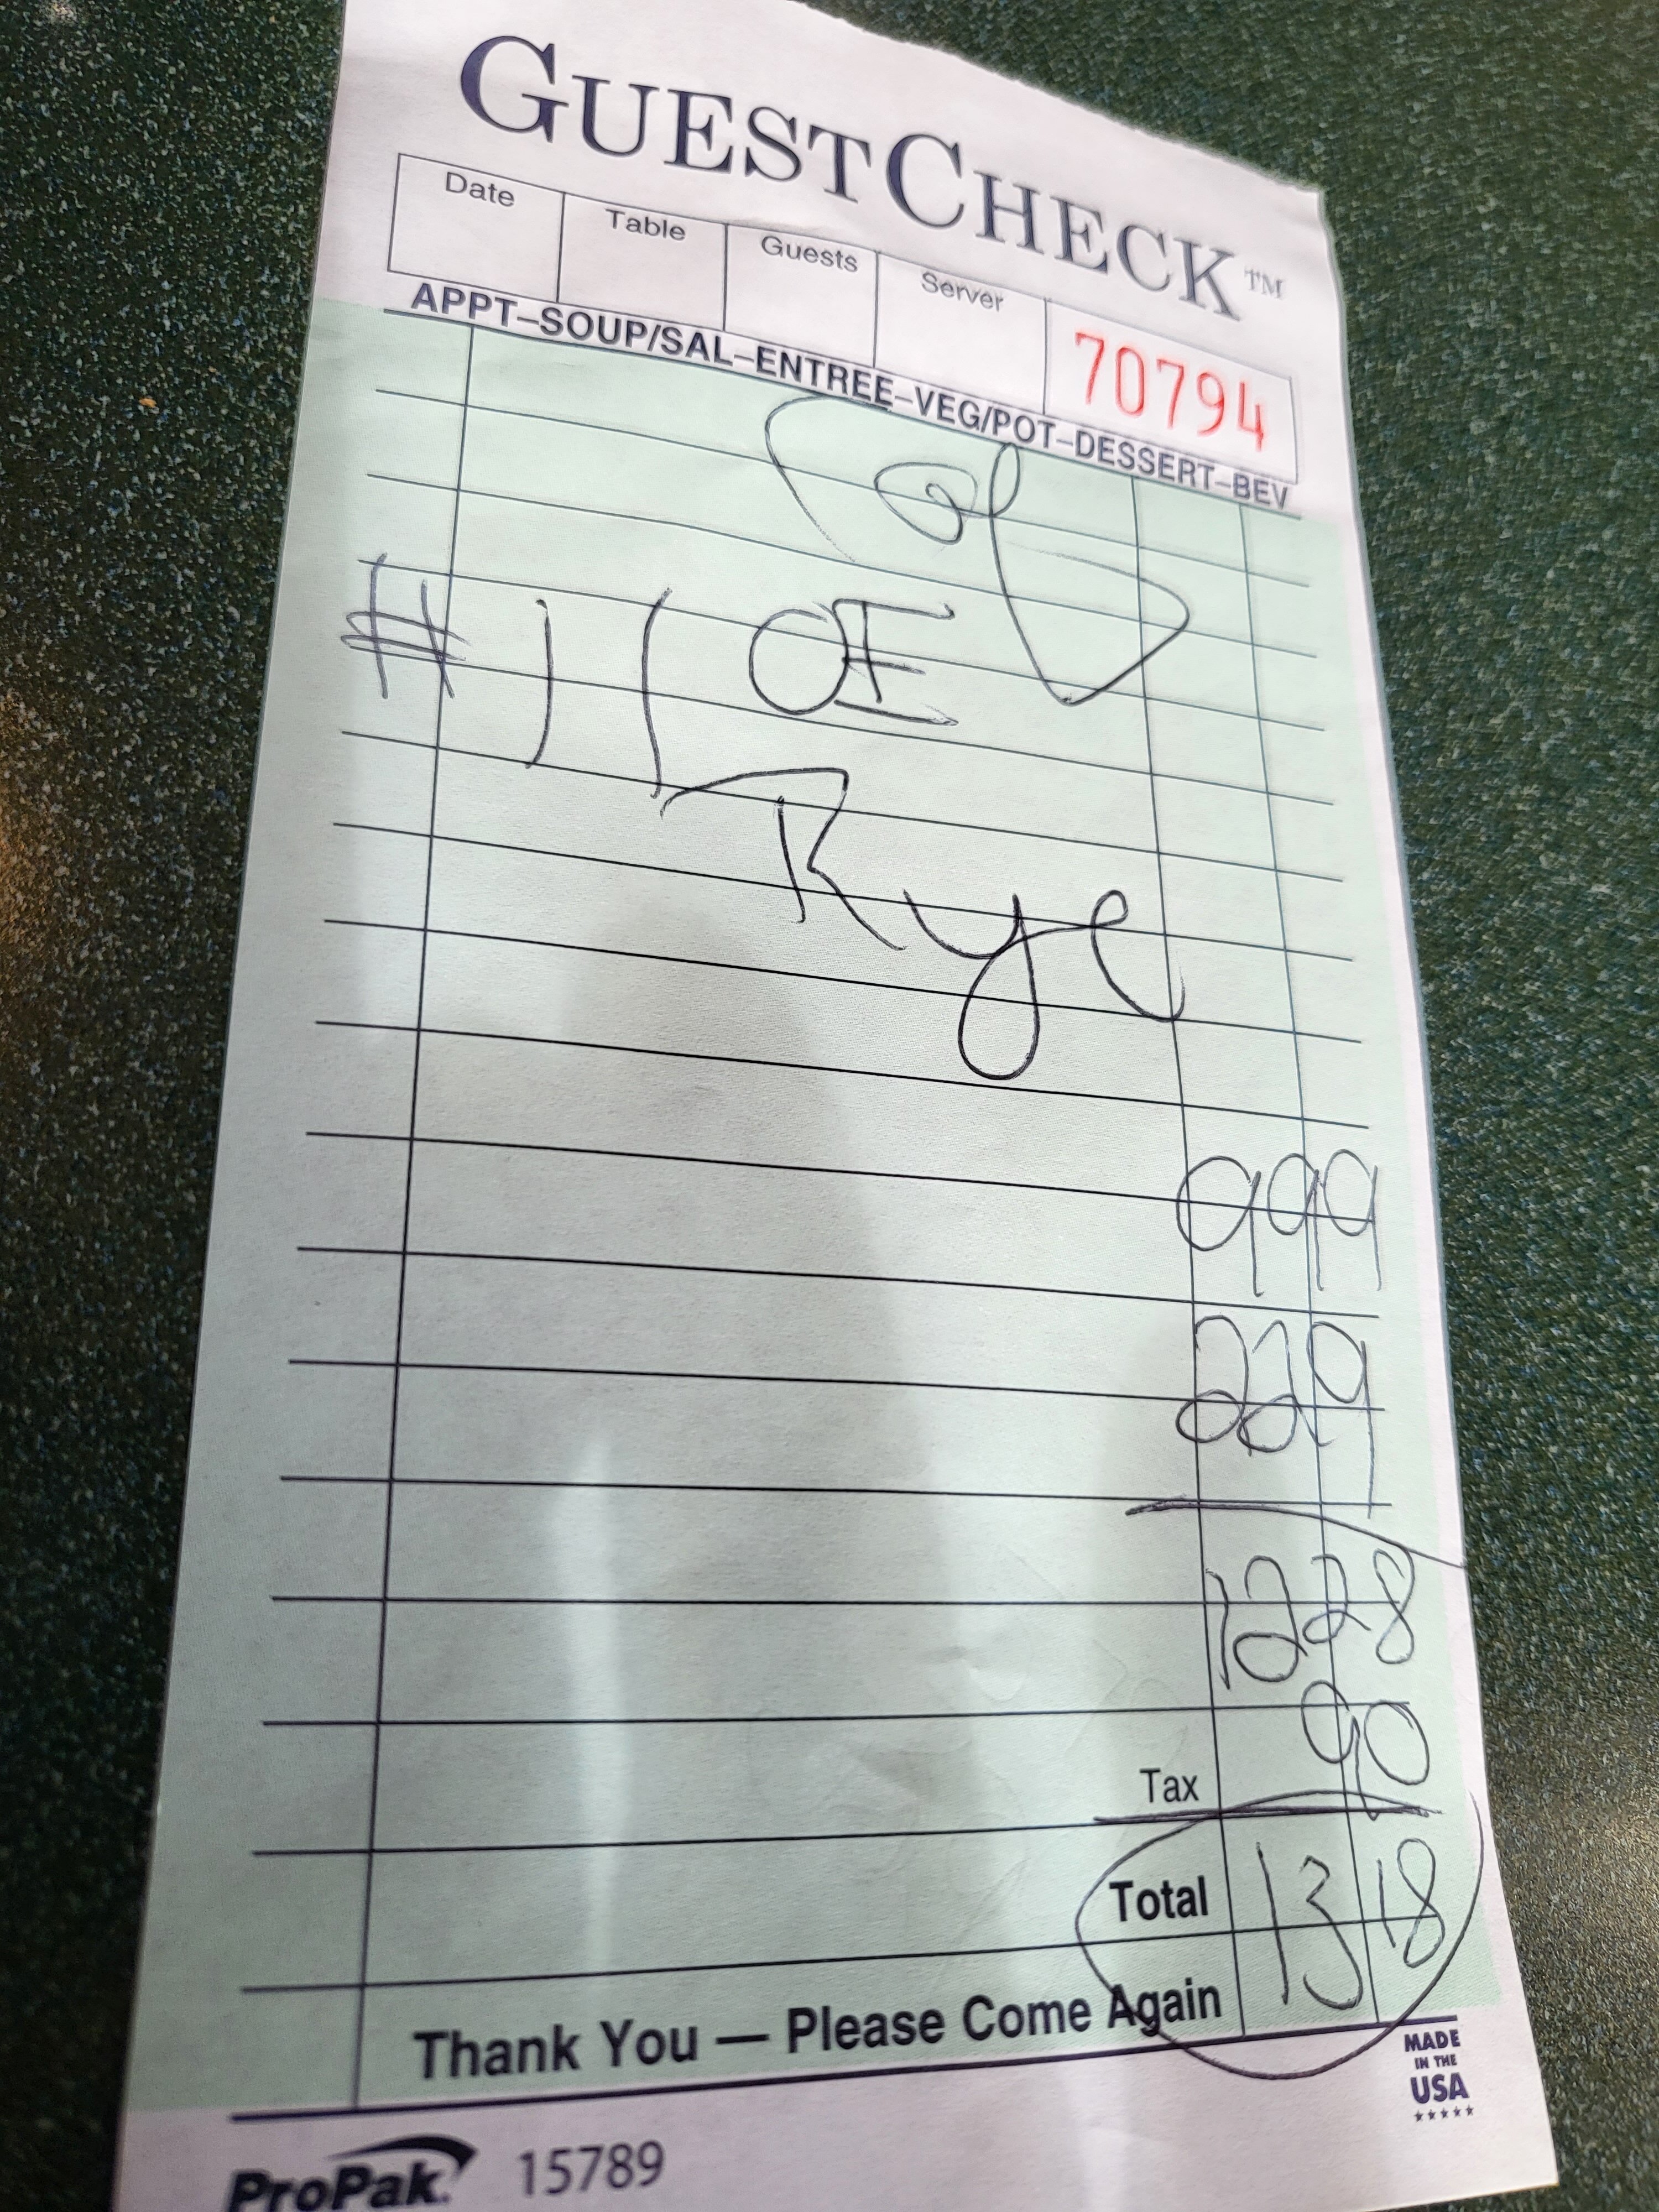 GUESTCHECK™
Date Table Guests Server
70794
APPT–SOUP/SAL–ENTREE–VEG/POT–DESSERT–BEV
#11 OE
Rye
9 99
2 29
12 28
Tax 90
Total 13 18
Thank You — Please Come Again
MADE
IN THE
USA
ProPak 15789